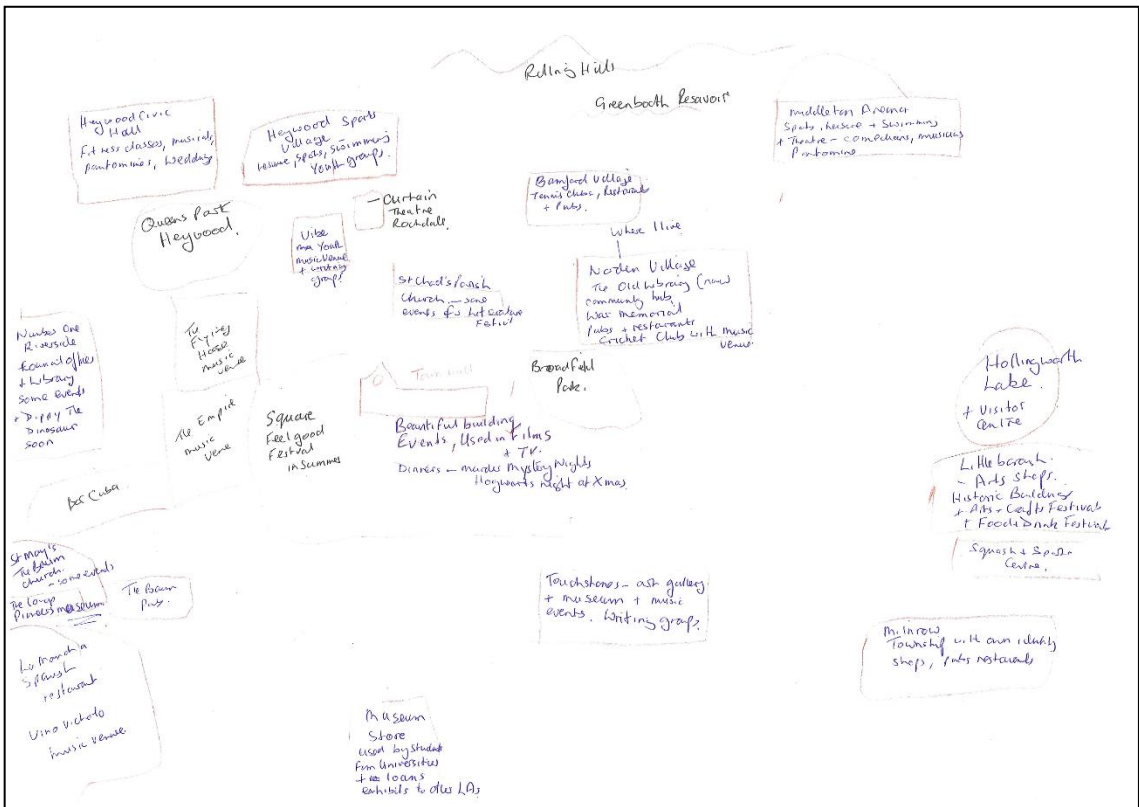 Rolling Hills
Greenbooth Resavoir
Heywood Civic
Hall
Fitness classes, musicals,
pantomines, weddings
Heywood Sports
Village
leisure, sports, swimming
Youth groups.
Middleton Arena
Sports, leisure + Swimming
+ Theatre - comedians, musicians
Pantomine
Queens Park
Heywood.
Vibe
Youth
music venue
+ writing
group.
- Curtain
Theatre
Rochdale
Bamford Village
Tennis clubs, Restaurants
+ Pubs.
Where I live
Norden Village
The Old Library (now
community hub,
War memorial
pubs + restaurants
Cricket Club with music
venue.
St Chad's Parish
Church - some
events for Literature
Number One
Riverside
Council offices
+ Library
some events
+ Dippy The
Dinosaur
soon
The
Flying
Horse
music
venue
The Empire
music
venue
Square
Feel good
Festival
in Summer
Town Hall
Beautiful building
Events, Used in Films
+ TV.
Dinners - murder Mystery Nights
Hogwarts night at Xmas
Broadfield
Park.
Hollingworth
Lake.
+ Visitor
Centre
Littleborough.
- Arts Shops.
Historic Buildings
+ Arts + Crafts Festival
+ Food + Drink Festival
Squash +
Centre.
Bar Cuba
St Mary's
The Baum
church.
- some events
The
Pioneers museum
The Baum
Pub.
La Mancha
Spanish
restaurant
Vino
music venue
Touchstones - gallery
+ museum + music
events. Writing group.
Milnrow
Township with own identity
shops, pubs restaurants
Museum
Store
used by students
from Universities
+ loans
exhibits to other LAs